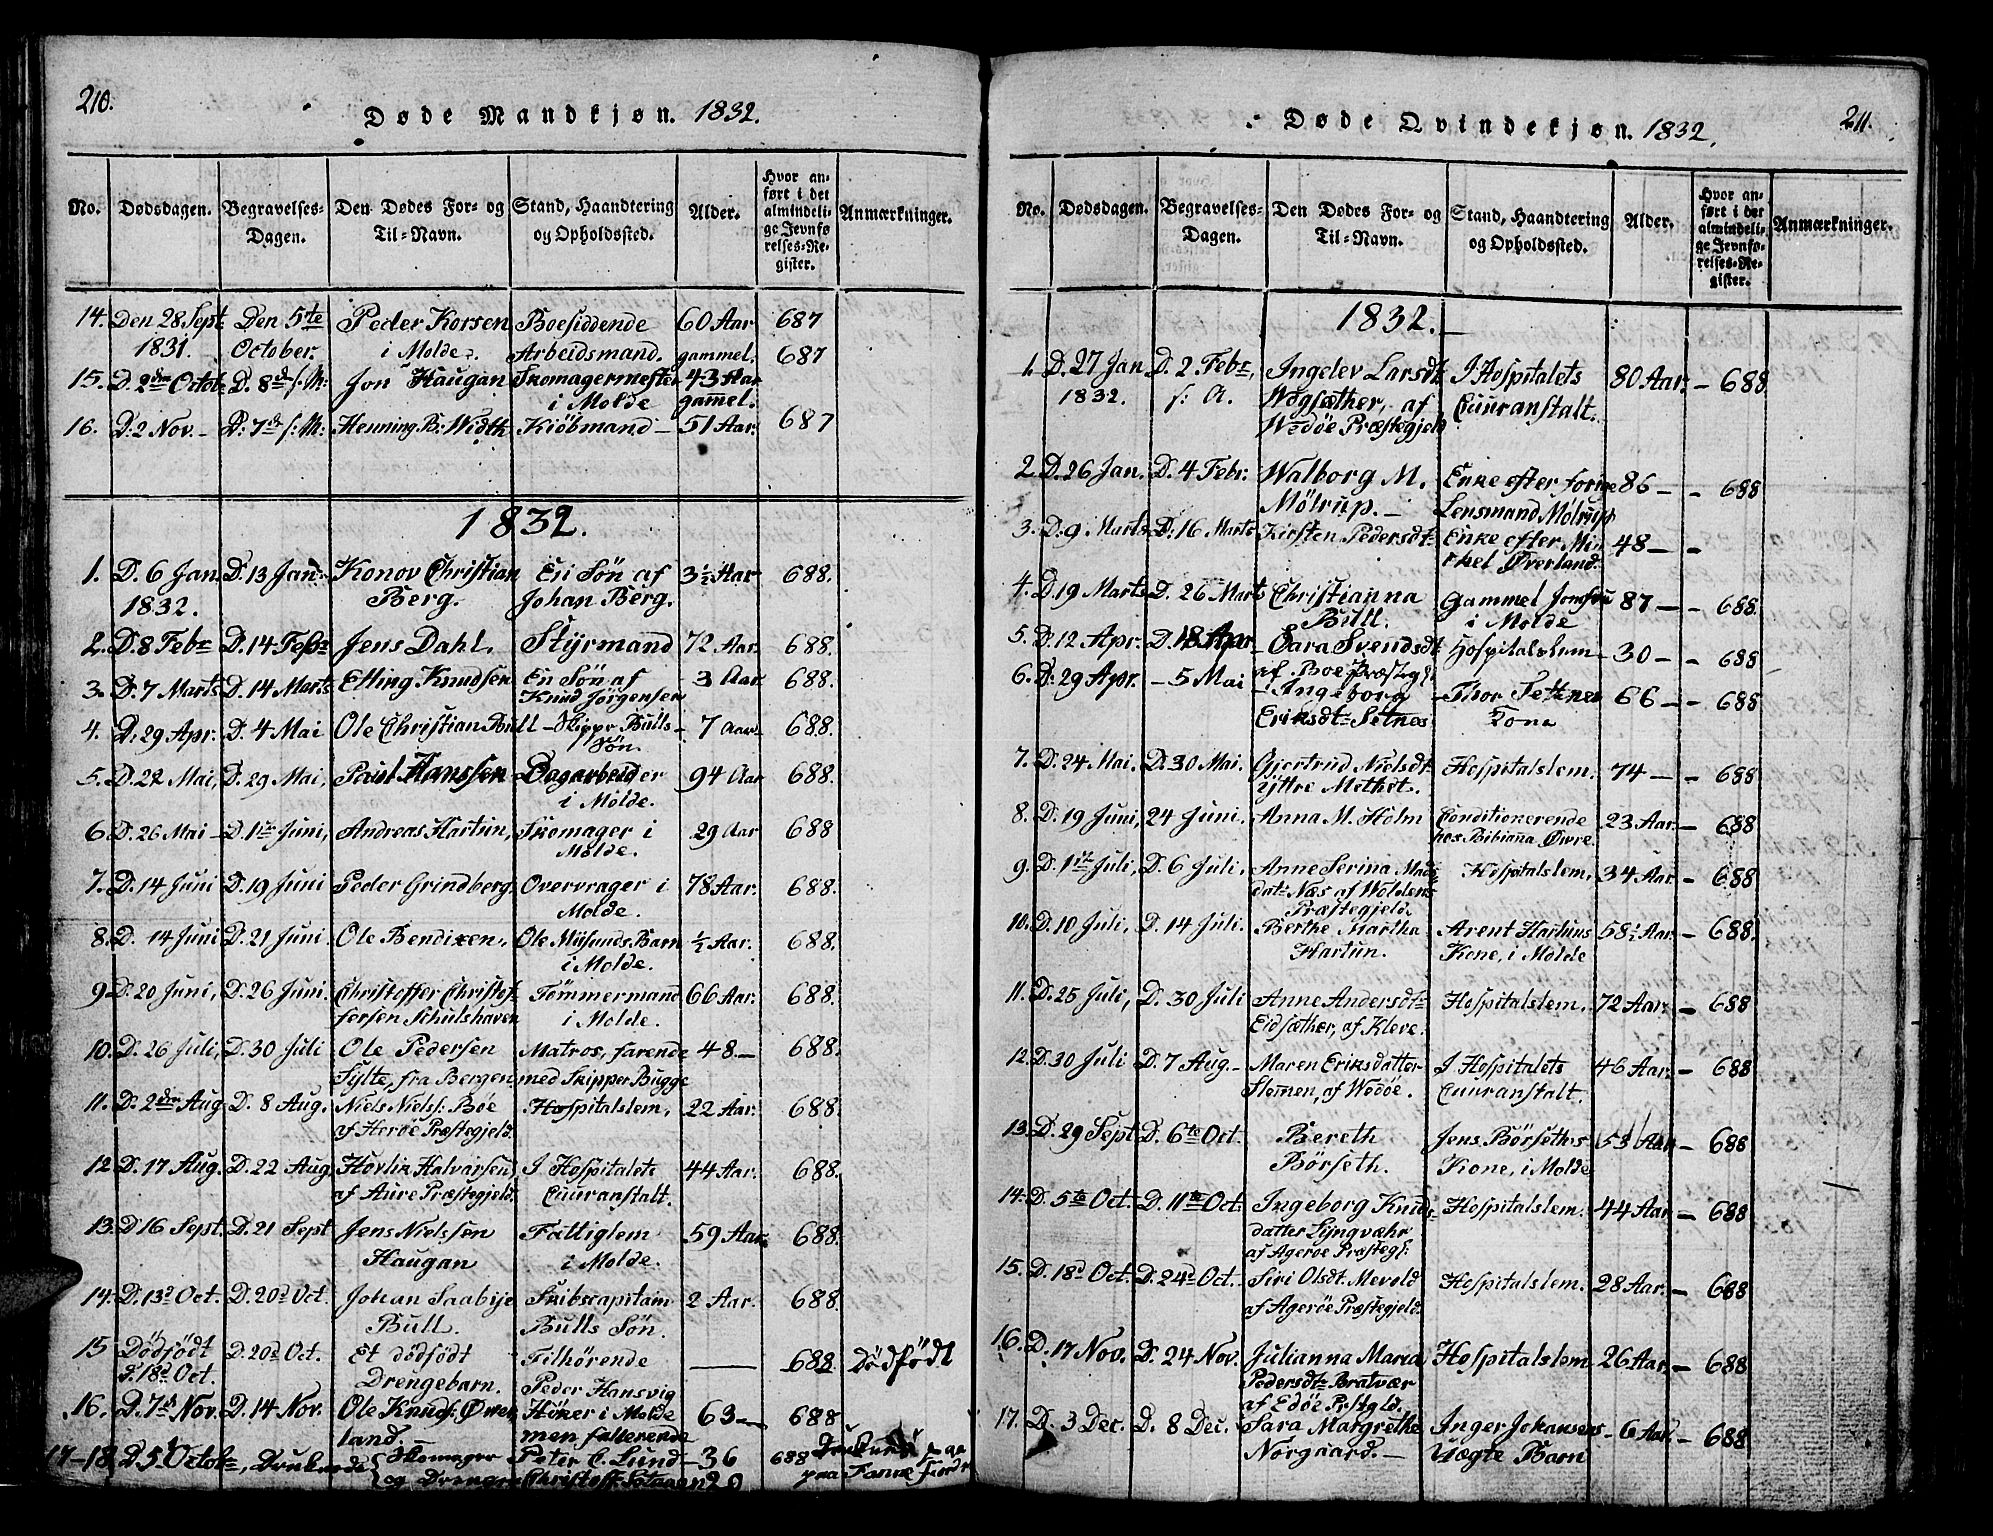 210.
Døde Mandkjøn. 1832.
No. Dødsdagen. Begravelses-Dagen. Den Dødes For- og Til-Navn. Stand, Haandtering og Opholdssted. Alder. Hvor anført i det almindelige Jevnførelses-Register. Anmærkninger.
14. Den 28 Sept Den 5te Peder Korsen Boesiddende 60 Aar 687
1831. October. i Molde. Arbeidsmand. gammel.
15. D. 2den Octobr D. 8de s: M: Jon Haugan Skomagermester 43 Aar 687
i Molde gammel.
16. D. 2 Nov. - D. 7de s: M: Henning Width Kiöbmand - 51 Aar. 687
1832.
1. D. 6 Jan. D. 13 Jan. Konov Christian En Sön af 3½ Aar 688.
1832. Berg. Johan Berg.
2. D. 8 Febr D. 14 Febr Jens Dahl. Styrmand 72 Aar. 688.
3. D. 7 Marts D. 14 Marts Elling Knudsen En Sön af 3 Aar 688.
Knud Jörgensen
4. D. 29 Apr. D. 4 Mai Ole Christian Bull - Skippr Bulls - 7 Aar 688.
Sön.
5. D. 22 Mai, D. 29 Mai, Paul Hanssen Dagarbeider 94 Aar 688.
i Molde.
6. D. 26 Mai - D. 1ste Juni, Andreas Hartun, Skomager i 29 Aar 688
Molde.
7. D. 14 Juni D. 19 Juni Peder Grindberg, Overvrager i 78 Aar. 688.
Molde.
8. D. 14 Juni D. 21 Juni Ole Bendixen, Ole Misunds Barn ½ Aar. 688.
i Molde.
9. D. 20 Juni, D. 26 Juni. Christoffer Christof- Tömmermand 66 Aar. 688.
fersen Schulshaven i Molde.
10. D. 26 Juli, D. 30 Juli Ole Pedersen Matros, farende 48 - 688.
Sylte, fra Bergen med Skipper Bugge
11. D. 2den Aug D. 8 Aug. Niels Niels: Böe Hospitalslem, 22 Aar. 688.
af Heröe Præstegjeld.
12. D. 17 Aug. D. 22 Aug. Halvarsen I Hospitalets 44 Aar. 688.
af Aure Præstegjeld. Cuuranstalt.
13. D 16 Sept. D. 21 Sept Jens Nielssen Fattiglem 59 Aar. 688.
Haugan i Molde.
14. D. 13d Oct. D. 20d Oct. Johan Saabye Skibscapitain 2 Aar. 688.
Bull. Bulls Sön.
15 Dödfödt D. 20d Oct. Et dödfödt Tilhörende - 688 Dödfödt
d. 18d Oct. Drengebarn. Peder Hansvig
16. D. 7de Nov. D. 14 Nov. Ole Knuds: Över Höker i Molde 63 - 688
land. - men falterende
17-18. D. 5 Octobr, Druknede Skomager Peter C. Lund - 36 688
og Drengen Christoff: 20 paa Fanne Fiord
211.
Døde Qvindekjøn. 1832.
No. Dødsdagen. Begravelses-Dagen. Den Dødes For- og Til-Navn. Stand, Haandtering og Opholdssted. Alder. Hvor anført i det almindelige Jevnførelses-Register. Anmærkninger.
1832.
1. D. 27 Jan D. 2 Febr, Ingelev Larsdt I Hospitalets 80 Aar. - 688
1832. s: A. Wogsæther, af Cuuranstalt.
Wedöe Præstegjeld
2. D. 26 Jan. D. 4 Febr. Walborg M. Enke efter forige 86 - - 688
Mölrup. - Lensmand Mölrup
3. D. 9 Marts D. 16 Marts Kirsten Pedersdt Enke efter Mi 48 - -
ckel Överland.
4. D. 19 Marts D. 26 Marts Christianna Gammel Jomfru 87 - - 688
Bull. i Molde
5. D. 12 Apr. D. 18 Apr Sara Svendsdt Hospitalslem - 30 - - 688
af Boe Præstegj:
6. D. 29 Apr. - 5 Mai - Ingeborg - Thor Setnes 66 - - 688
Eriksdt Setnes Kone
7. D. 24 Mai. D. 30 Mai. Gjertrud Nielsdt Hospitalslem. 74 - - 688
yttre Methet.
8. D. 19 Juni, 24 Juni. Anna M. Holm Conditionerende 23 Aar. - 688
hos Bibiana Övre.
9. D. 1ste Juli, D. 6 Juli. Anne Serina Mads- Hospitalslem. 34 Aar. - 688
dat: Næs af Woldens
Præstegjeld.
10. D. 10 Juli, D. 14 Juli. Berthe Martha Arent Hartuns 58½ Aar. - 688.
Hartun. Kone, i Molde
11. D. 25 Juli, D. 30 Juli Anne Andersdt Hospitalslem, 72 Aar. - 688
Eidsæther, af Kleve.
12. D. 30 Juli D. 7 Aug. - Maren Eriksdatter I Hospitalets 46 Aar. - 688
Slemen, af Wodöe. Cuuranstalt.
13. D. 29 Sept D. 6te Oct. Bereth Jens Börseths 53 Aar - 688
Börseth. Kone, i Molde
14. D. 5te Oct. D. 11te Oct. Ingeborg Knuds- Hospitalslem. 44 Aar. - 688
datter Lyngvæhr
af Ageroe Præstegj:
15. D. 18d Oct. D. 24d Oct. Siri Olsdt. Mevold Hospitalslem. 28 Aar. - 688
af Ageröe Præstegjeld.
16. D. 17 Nov. D. 24 Nov. Julianna Maria Hospitalslem 26 Aar. - 688
Pedersdt Bratvær
af Edöe Prstgld.
17. D. 3 Dec. D. 8 Dec. Sara Margrethe Inger Johansens - 6 Aar - 688
Norgaard. - Uægte Barn